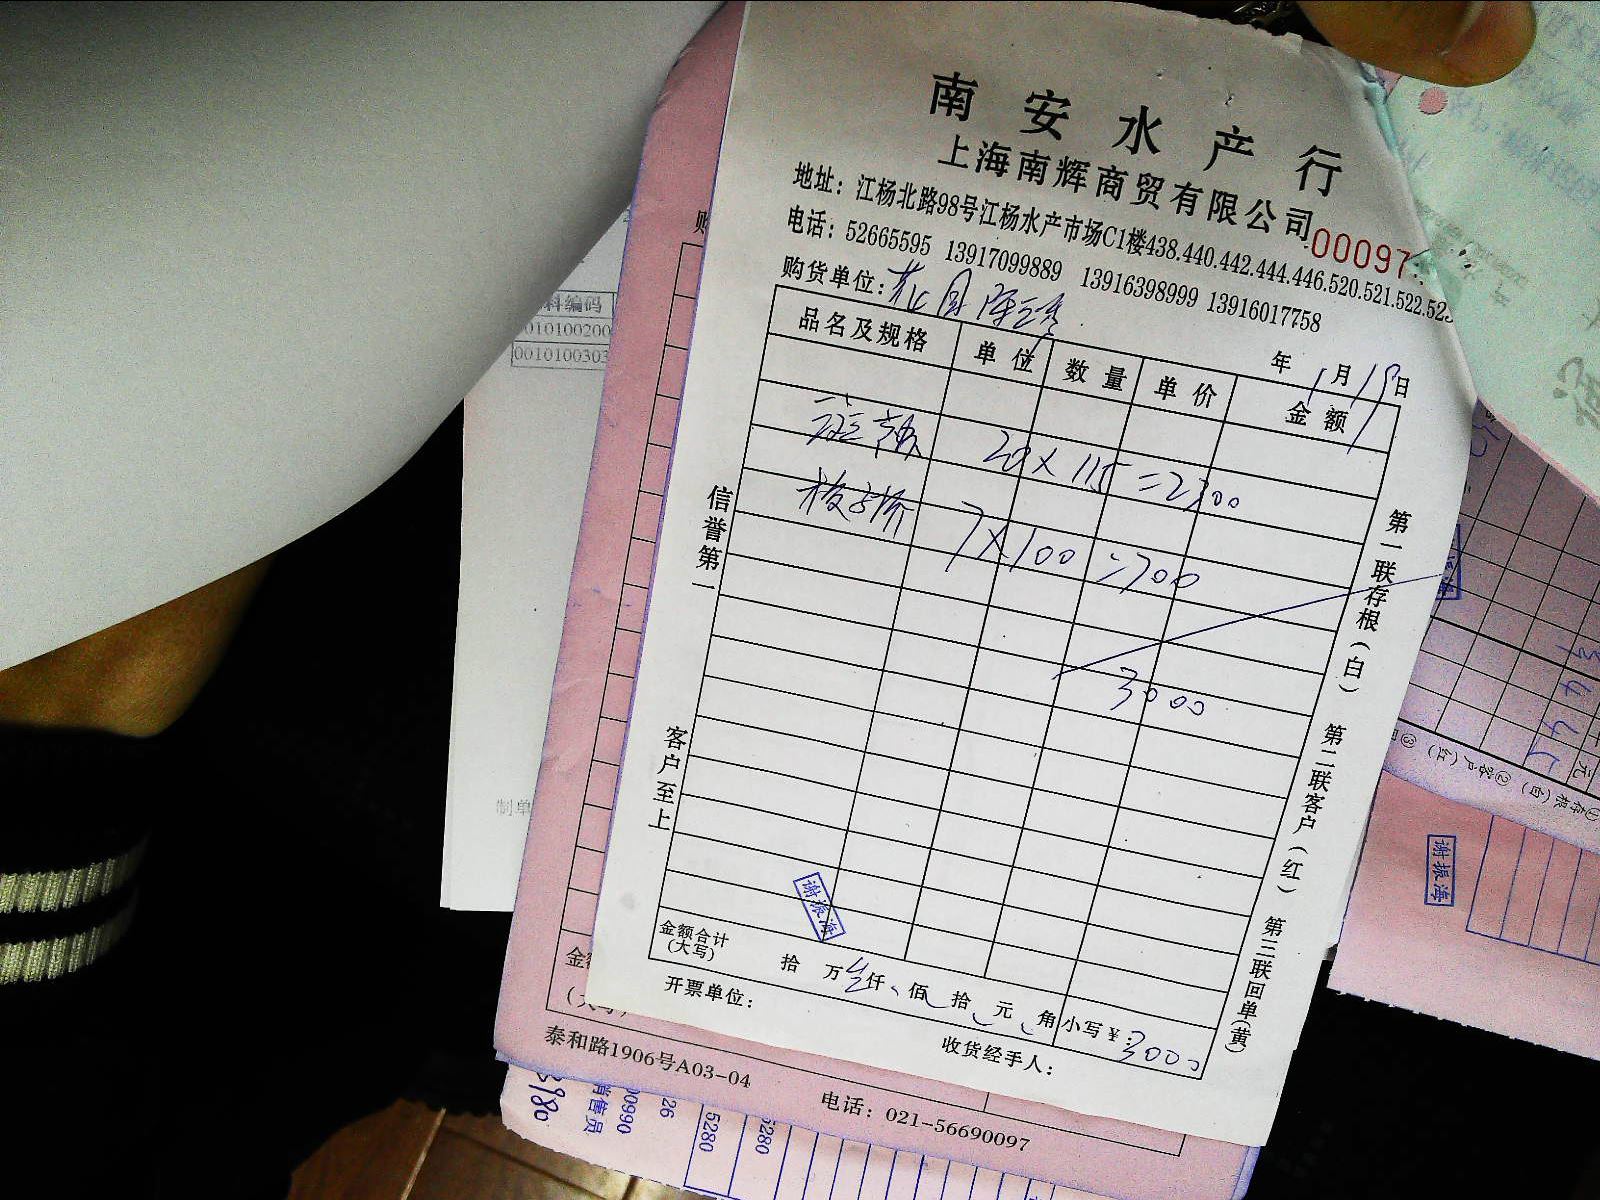 南安水产行
上海南辉商贸有限公司
00097
地址：江杨北路98号江杨水产市场C1楼438.440.442.444.446.520.521.522.523
电话：52665595 13917099889 13916398999 13916017758
购货单位：花园
年1月19日
品名及规格 单位 数量 单价 金额
20×115=2300
7×100=700
3000
信誉第一
客户至上
第一联存根（白） 第二联客户（红） 第三联回单（黄）
谢振海
金额合计（大写） 拾 万 叁仟 佰 拾 元 角 小写￥：3000
开票单位：
收货经手人：
料编码
0010100200
0010100303
制单
泰和路1906号A03-04
电话：021-56690097
3980
销售员
00990
26
5280
5280
谢振海
①存根(白) ②客户(红) ③
元